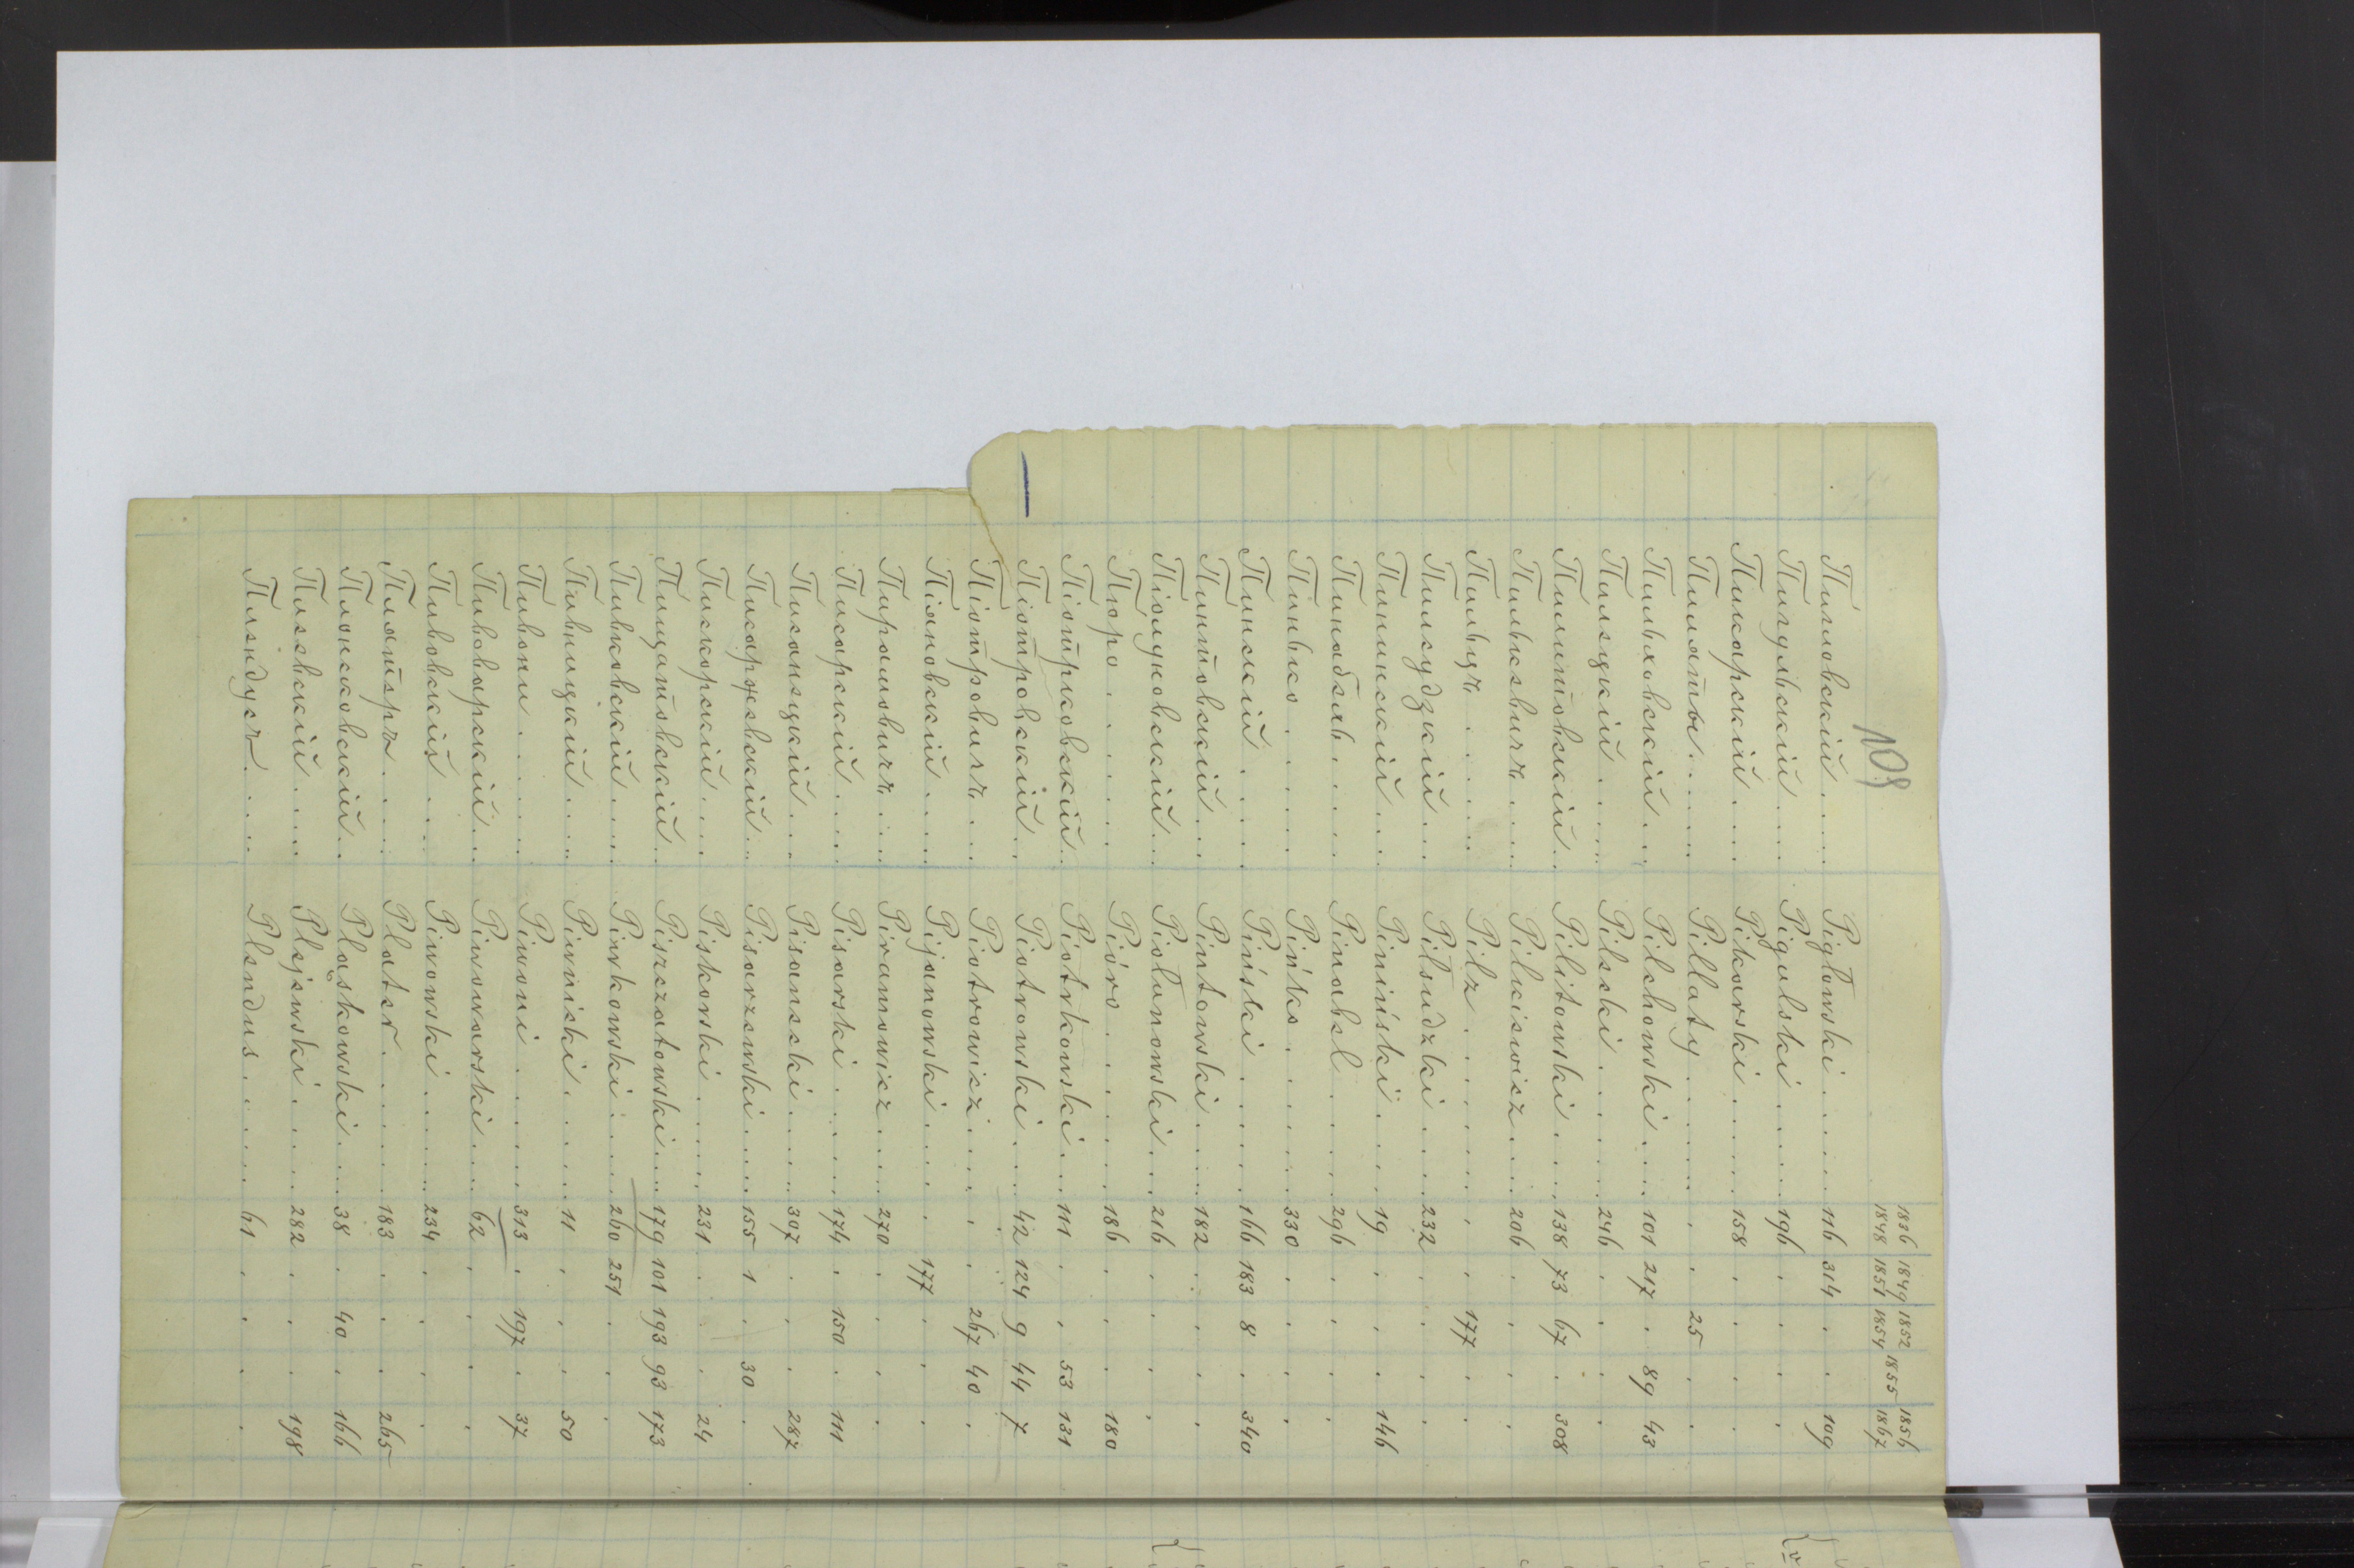 109
1836 1849 1852 1855 1856
1848 1851 1854 1867
Пигловскій..... Pigłowski...... 116 314 . . 109
Пигульскій.... Pigulski...... 196 . . . .
Пикарскій.... Pikarski..... 158 . . . .
Пилляты..... Pillaty...... . . 25 . .
Пильховскій... Pilchowski.... 101 217 . 89 43
Пилецкій..... Pilecki...... 246 . . . .
Пилитовскій.. Pilitowski.... 138 73 67 . 308
Пилькевичъ.... Pilkiewicz.... 206 . . . .
Пильцъ...... Pilz....... . . 177 . .
Пилсудзкій... Piłsudzki.... 232 . . . .
Пининскій.... Pininski.... 19 . . . 146
Пинабель..... Pinabel..... 296 . . . .
Пинько...... Pińko...... 330 . . . .
Пинскій..... Piński..... 166 183 8 . 340
Пинтовскій... Pintowski.... 182 . . . .
Піолуновскій.. Piołunowski... 216 . . . .
Піоро....... Pióro...... 186 . . . 180
Піотрковскій.. Piotrkowski... 111 . . 53 131
Піотровскій.. Piotrowski.... 42 124 9 44 7
Піотровичъ... Piotrowicz.... . . 267 40 .
Піяновскій.... Pijanowski.... . 177 . . .
Пирамовичъ... Piramowicz.... 270 . . . .
Писарскій.... Pisarski..... 174 . 150 . 111
Писанецкій... Pisanecki.... 307 . . . 287
Писаржевскій.. Pisarzewski.... 155 1 . 30 .
Пискорскій... Piskorski.... 231 . . . 24
Пищатовскій.. Piszczatowski... 179 101 193 93 173
Пивковскій... Piwkowski.... 260 251 . . .
Пивницкій.... Piwnicki.... 11 . . . 50
Пивони...... Piwoni..... 313 . 197 . 37
Пивоварскій.. Piwowarski... 62 . . . .
Пивовскій... Piwowski.... 234 . . . .
Платеръ.... Plater...... 183 . . . 265
Плонсковскій.. Pląskowski.... 38 . 40 . 166
Плевскій.... Plejewski.... 282 . . . 198
Плендусъ.... Plendus..... 61 . . . .